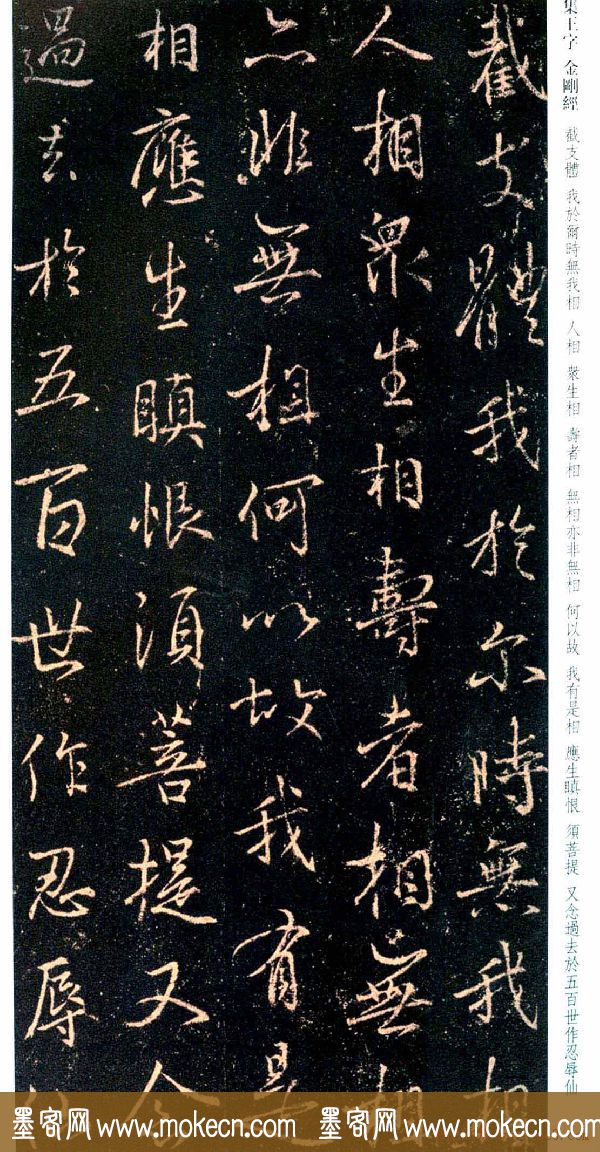 集王字 金剛經 截支體 我於爾時無我相 人相 衆生相 壽者相 無相亦非無相 何以故 我有是相 應生瞋恨 須菩提 又念過去於五百世作忍辱仙
截支體我於尔時無我相
人相衆生相壽者相無相
亦非無相何以故我有是
相應生瞋恨須菩提又念
過去於五百世作忍辱仙
墨客网 www.mokecn.com 墨客网 www.mokecn.com